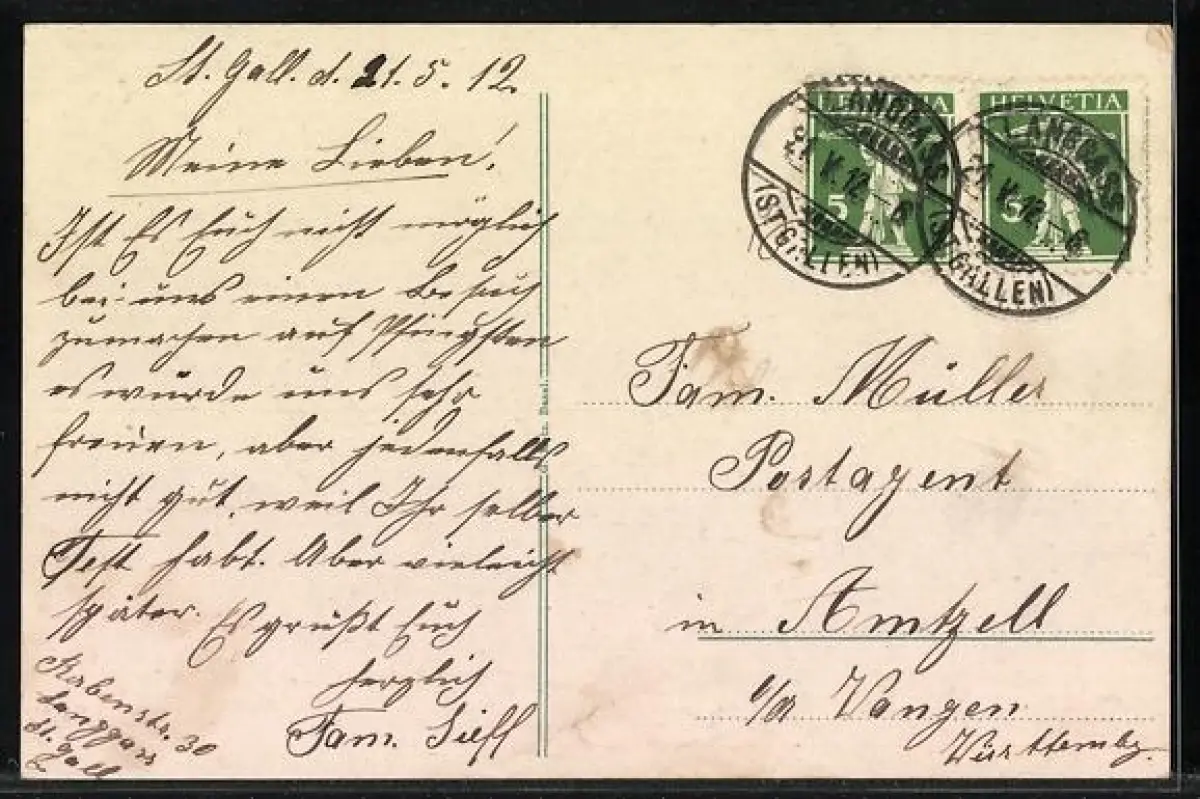 St. Gall. d. 21. 5. 12.
Meine Lieben!
Ist Es Euch nicht möglich
bei uns einen Besuch
zumachen auf Pfingsten
es würde uns sehr
freuen, aber jedenfalls
nicht gut, weil Ihr selber
Fest habt. Aber vieleicht
später. Es grüßt Euch
herzlich
Fam.
30
Langgass
St. Gall
HELVETIA
HELVETIA
5
5
LANGGASS
21. V. 12.
(ST. GALLEN)
LANGGASS
21. V. 12.
(ST. GALLEN)
Fam. Müller
Postagent
in Amtzell
o/a Wangen
Württembg.
Basel.